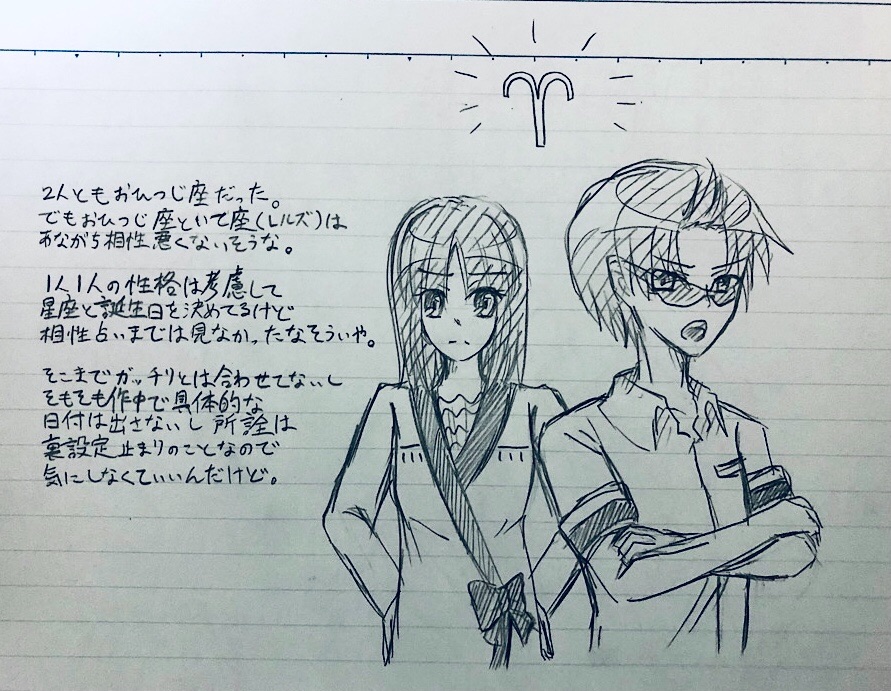 2人ともおひつじ座だった。
でもおひつじ座といて座(レルズ)は
あながち相性悪くないそうな。
1人1人の性格は考慮して
星座と誕生日を決めてるけど
相性占いまでは見なかったなそういや。
そこまでガッチリとは合わせてないし
そもそも作中で具体的な
日付は出さないし 所詮は
裏設定止まりのことなので
気にしなくていいんだけど。